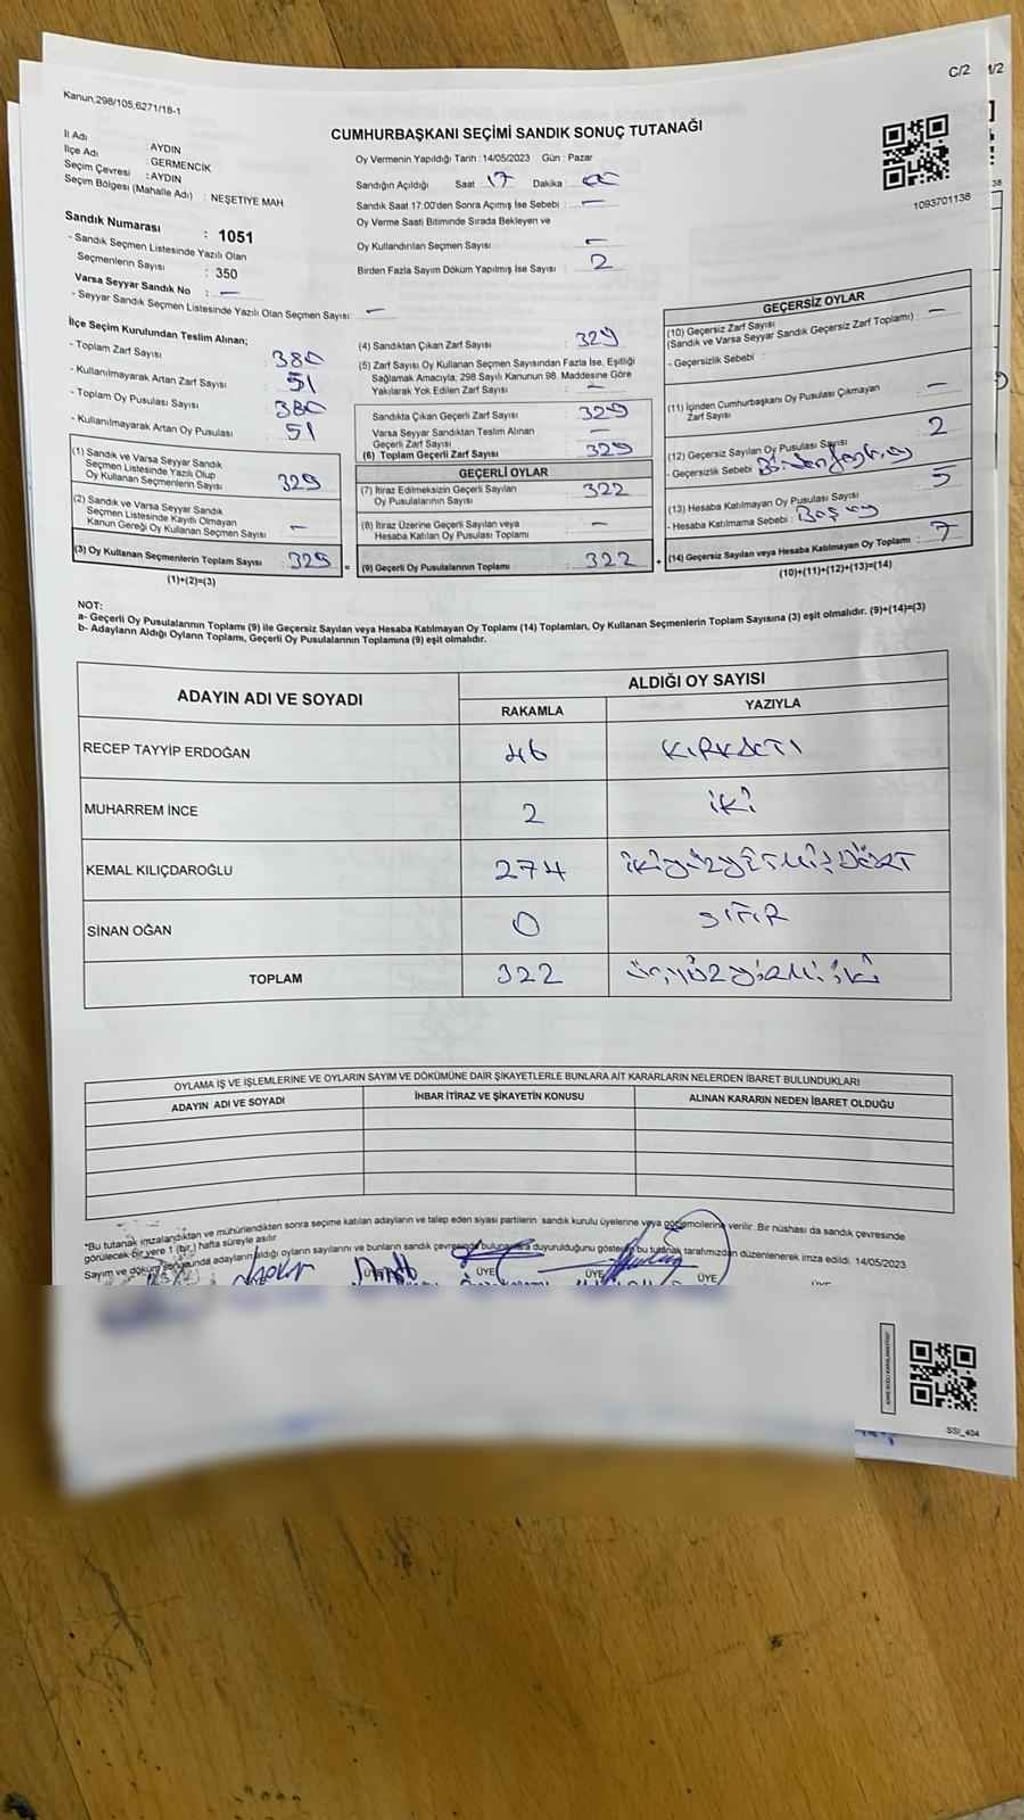 C/2
1/2
Kanun,298/105,6271/18-1
CUMHURBAŞKANI SEÇİMİ SANDIK SONUÇ TUTANAĞI
İl Adı : AYDIN
İlçe Adı : GERMENCİK
Seçim Çevresi : AYDIN
Seçim Bölgesi (Mahalle Adı) : NEŞETİYE MAH
Sandık Numarası : 1051
- Sandık Seçmen Listesinde Yazılı Olan
Seçmenlerin Sayısı : 350
Varsa Seyyar Sandık No : —
- Seyyar Sandık Seçmen Listesinde Yazılı Olan Seçmen Sayısı : —
Oy Vermenin Yapıldığı Tarih : 14/05/2023 Gün : Pazar
Sandığın Açıldığı Saat 17 Dakika 00
Sandık Saat 17:00'den Sonra Açımış İse Sebebi : —
Oy Verme Saati Bitiminde Sırada Bekleyen ve
Oy Kullandırılan Seçmen Sayısı —
Birden Fazla Sayım Döküm Yapılmış İse Sayısı : 2
1093701138
38
İlçe Seçim Kurulundan Teslim Alınan;
- Toplam Zarf Sayısı 380
- Kullanılmayarak Artan Zarf Sayısı 51
- Toplam Oy Pusulası Sayısı 380
- Kullanılmayarak Artan Oy Pusulası 51
(1) Sandık ve Varsa Seyyar Sandık
Seçmen Listesinde Yazılı Olup
Oy Kullanan Seçmenlerin Sayısı 329
(2) Sandık ve Varsa Seyyar Sandık
Seçmen Listesinde Kayıtlı Olmayan
Kanun Gereği Oy Kullanan Seçmen Sayısı : —
(3) Oy Kullanan Seçmenlerin Toplam Sayısı : 329
(1)+(2)=(3)
(4) Sandıktan Çıkan Zarf Sayısı : 329
(5) Zarf Sayısı Oy Kullanan Seçmen Sayısından Fazla İse, Eşitliği
Sağlamak Amacıyla; 298 Sayılı Kanunun 98. Maddesine Göre
Yakılarak Yok Edilen Zarf Sayısı : —
Sandıkta Çıkan Geçerli Zarf Sayısı : 329
Varsa Seyyar Sandıktan Teslim Alınan
Geçerli Zarf Sayısı : —
(6) Toplam Geçerli Zarf Sayısı : 329
GEÇERLİ OYLAR
(7) İtiraz Edilmeksizin Geçerli Sayılan
Oy Pusulalarının Sayısı : 322
(8) İtiraz Üzerine Geçerli Sayılan veya
Hesaba Katılan Oy Pusulası Toplamı : —
(9) Geçerli Oy Pusulalarının Toplamı : 322
GEÇERSİZ OYLAR
(10) Geçersiz Zarf Sayısı
(Sandık ve Varsa Seyyar Sandık Geçersiz Zarf Toplamı) : —
- Geçersizlik Sebebi :
(11) İçinden Cumhurbaşkanı Oy Pusulası Çıkmayan
Zarf Sayısı : —
(12) Geçersiz Sayılan Oy Pusulası Sayısı 2
- Geçersizlik Sebebi : Birden fazla oy
(13) Hesaba Katılmayan Oy Pusulası Sayısı 5
- Hesaba Katılmama Sebebi : Boş oy
(14) Geçersiz Sayılan veya Hesaba Katılmayan Oy Toplamı : 7
(10)+(11)+(12)+(13)=(14)
NOT:
a- Geçerli Oy Pusulalarının Toplamı (9) ile Geçersiz Sayılan veya Hesaba Katılmayan Oy Toplamı (14) Toplamları, Oy Kullanan Seçmenlerin Toplam Sayısına (3) eşit olmalıdır. (9)+(14)=(3)
b- Adayların Aldığı Oyların Toplamı, Geçerli Oy Pusulalarının Toplamına (9) eşit olmalıdır.
ADAYIN ADI VE SOYADI
ALDIĞI OY SAYISI
RAKAMLA YAZIYLA
RECEP TAYYİP ERDOĞAN 46 KIRKALTI
MUHARREM İNCE 2 iki
KEMAL KILIÇDAROĞLU 274 İKİYÜZYETMİŞDÖRT
SİNAN OĞAN 0 SIFIR
TOPLAM 322 ÜÇYÜZYİRMİİKİ
OYLAMA İŞ VE İŞLEMLERİNE VE OYLARIN SAYIM VE DÖKÜMÜNE DAİR ŞİKAYETLERLE BUNLARA AİT KARARLARIN NELERDEN İBARET BULUNDUKLARI
ADAYIN ADI VE SOYADI İHBAR İTİRAZ VE ŞİKAYETİN KONUSU ALINAN KARARIN NEDEN İBARET OLDUĞU
*Bu tutanak imzalandıktan ve mühürlendikten sonra seçime katılan adayların ve talep eden siyasi partilerin sandık kurulu üyelerine veya gözlemcilerine verilir. Bir nüshası da sandık çevresinde
görülecek bir yere 1 (bir) hafta süreyle asılır.
Sayım ve döküm sonucunda adayların aldığı oyların sayılarını ve bunların sandık çevresinde bulunanlara duyurulduğunu gösteren bu tutanak tarafımızdan düzenlenerek imza edildi. 14/05/2023
ÜYE ÜYE ÜYE
SSI_404